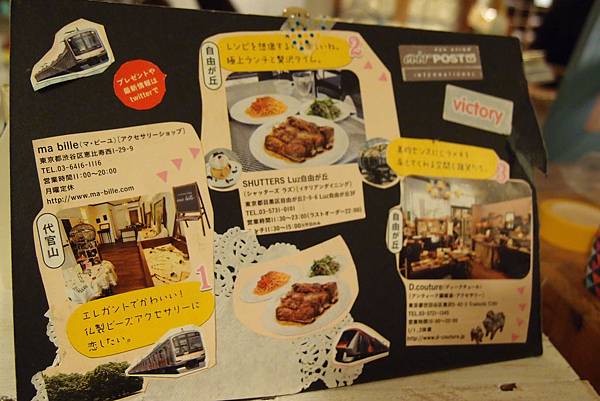 プレゼントや
最新情報は
twitterで
ma bille(マ・ビーユ)[アクセサリーショップ]
東京都渋谷区恵比寿西1-29-9
TEL.03-6416-1116
営業時間11:00〜20:00
月曜定休
http://www.ma-bille.com
代官山
ma bille
1
エレガントでかわいい!
仏製ビーズアクセサリーに
恋したい。
自由が丘
レシピを想像する
極上ランチと贅沢タイム。
2
SHUTTERS Luz自由が丘
(シャッターズ ラズ)[イタリアンダイニング]
東京都目黒区自由が丘2-9-6 Luz自由が丘3F
TEL.03-5731-0101
営業時間11:30〜23:00(ラストオーダー22:00)
POST
INTERNATIONAL
victory
3
自由が丘
D.couture(ディ・クチュール)
TEL.03-5721-1345
営業時間10:00〜20:00
http://www.d-couture.jp